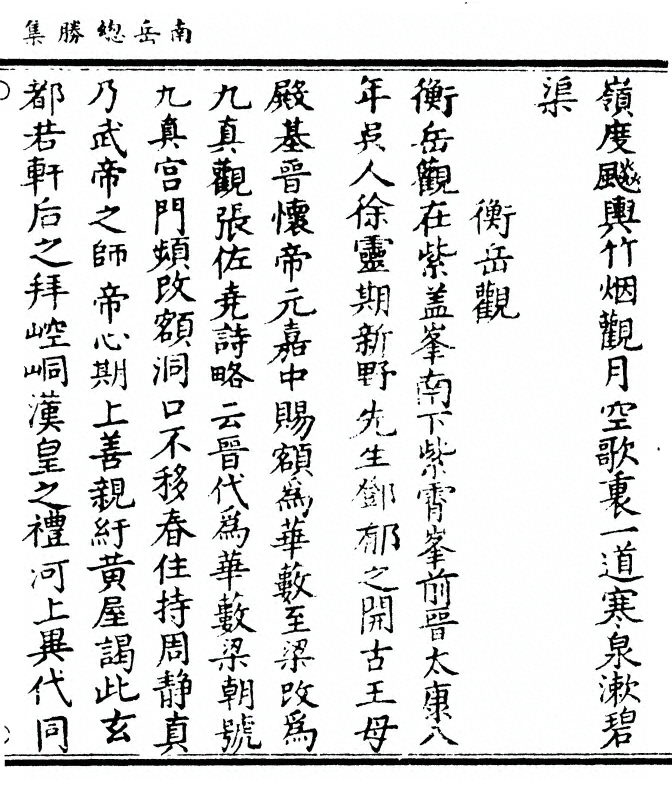 南岳總勝集
嶺度飈輿竹烟觀月空歌裏一道寒泉漱碧
渠
衡岳觀
衡岳觀在紫盖峯南下紫霄峯前晉太康八
年吳人徐靈期新野先生鄧郁之開古王母
殿基晉懷帝元嘉中賜額爲華藪至梁改爲
九真觀張佐堯詩略云晉代爲華藪梁朝號
九真宫門頻改額洞口不移春住持周静真
乃武帝之師帝心期上善親紆黄屋謁此玄
都若軒后之拜崆峒漢皇之禮河上異代同